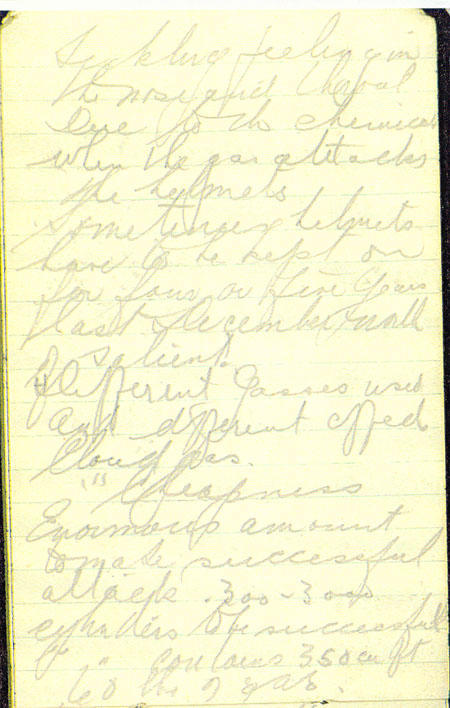 Tickling feeling in
the nose and throat
due to the chemical
when the gas attacks
the helmets
Sometimes helmets
have to be kept on
for four or five
last December, north
of Salient.
Different Gasses used
and different effects
Cloud gas.
" Cheapness
Enormous amount
to make successful
attack. 300-3000
cylinders to be successful
" contains 350 cu ft
60 lbs of gas.